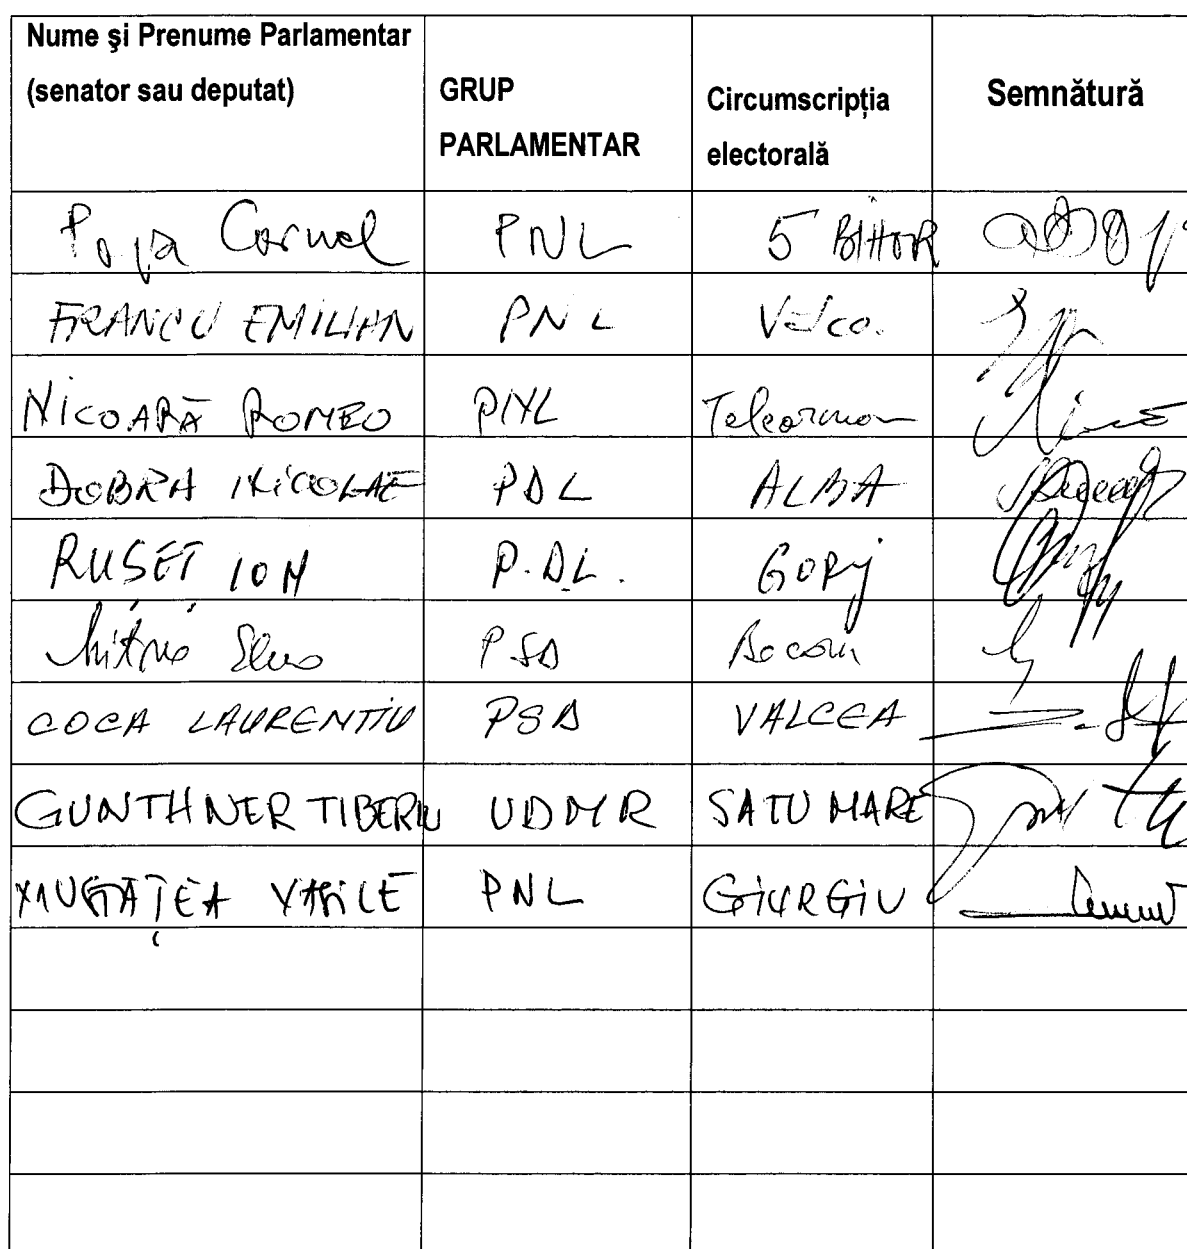 Nume şi Prenume Parlamentar
(senator sau deputat)
GRUP
PARLAMENTAR
Circumscripţia
electorală
Semnătură
Popa Cornel PNL 5 BIHOR
FRANCU EMILIAN PNL
NICOARĂ ROMEO PNL Teleorman
DOBRA NICOLAE PDL ALBA
RUSET ION P.DL. GORJ
PSD
COCA LAURENTIU PSD VALCEA
GUNTHNER TIBERIU UDMR SATU MARE
VASILE PNL GIURGIU